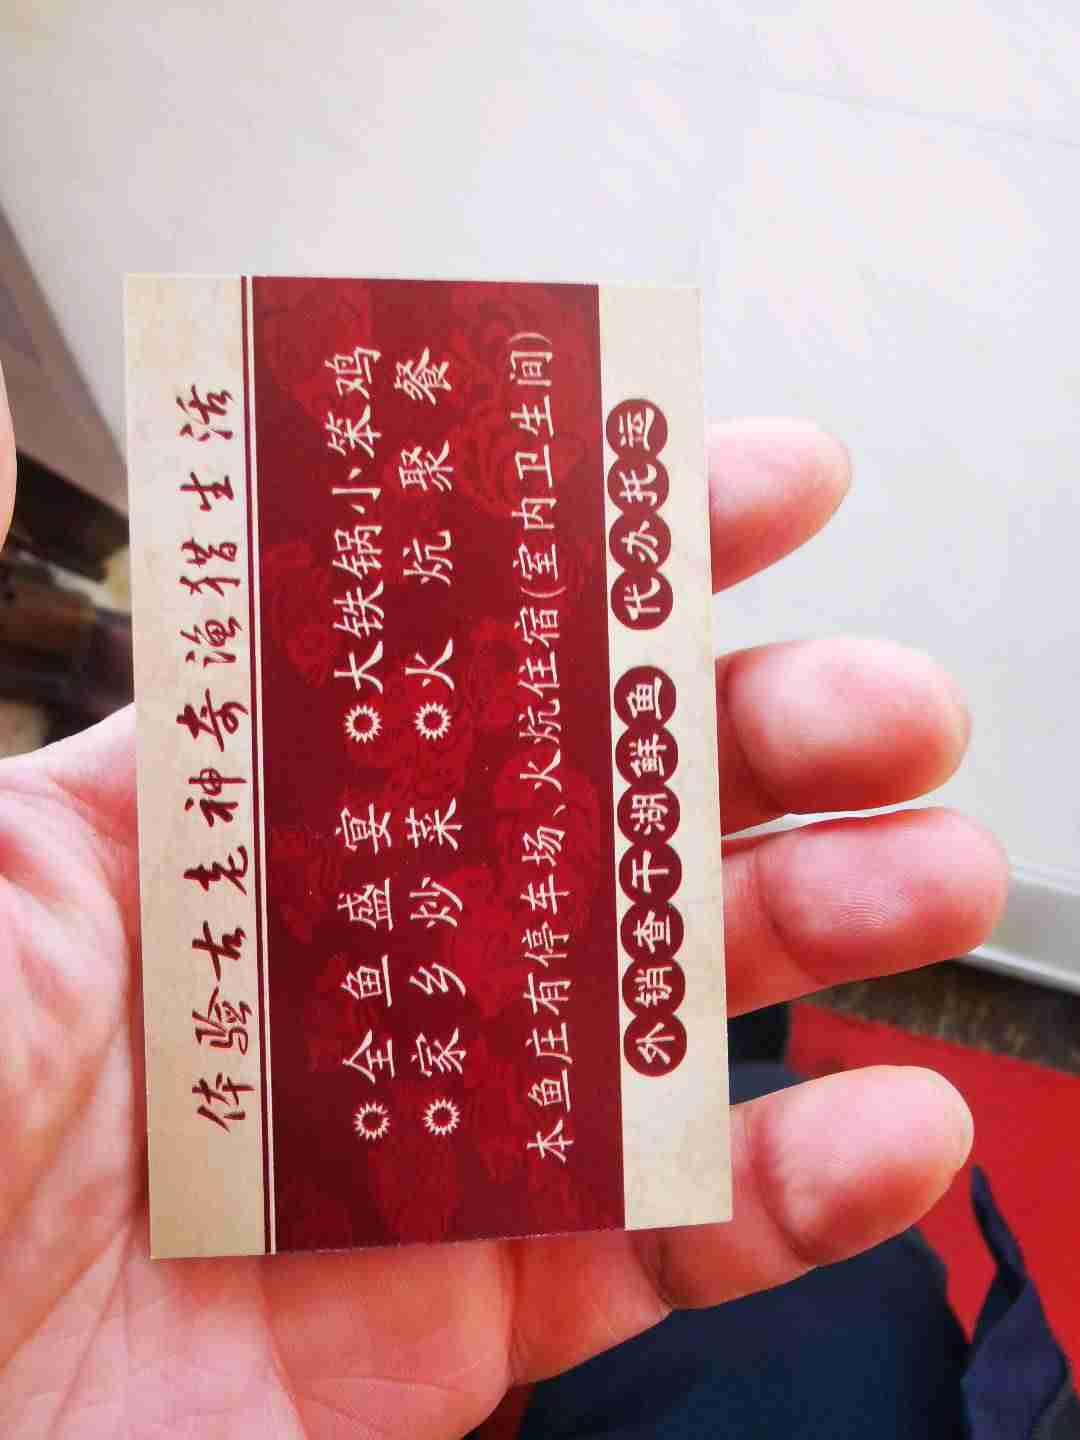 体验古老神奇渔猎生活
全鱼盛宴 大铁锅小笨鸡
家乡炒菜 火炕聚餐
本鱼庄有停车场、火炕住宿(室内卫生间)
外销查干湖鲜鱼 代办托运